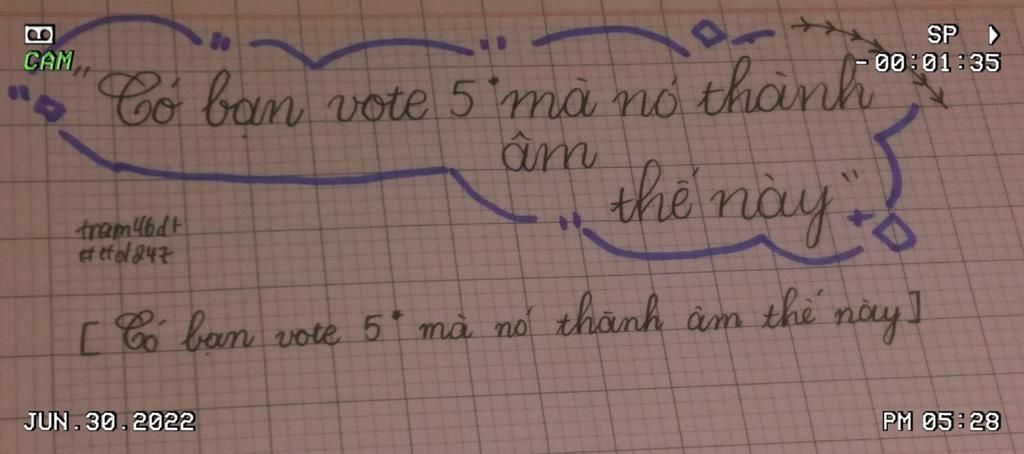 SP
CAM
-00:01:35
"Có bạn vote 5* mà nó thành
âm
thế này"
tram46dt
[Có bạn vote 5* mà nó thành âm thế này]
JUN.30.2022
PM 05:28